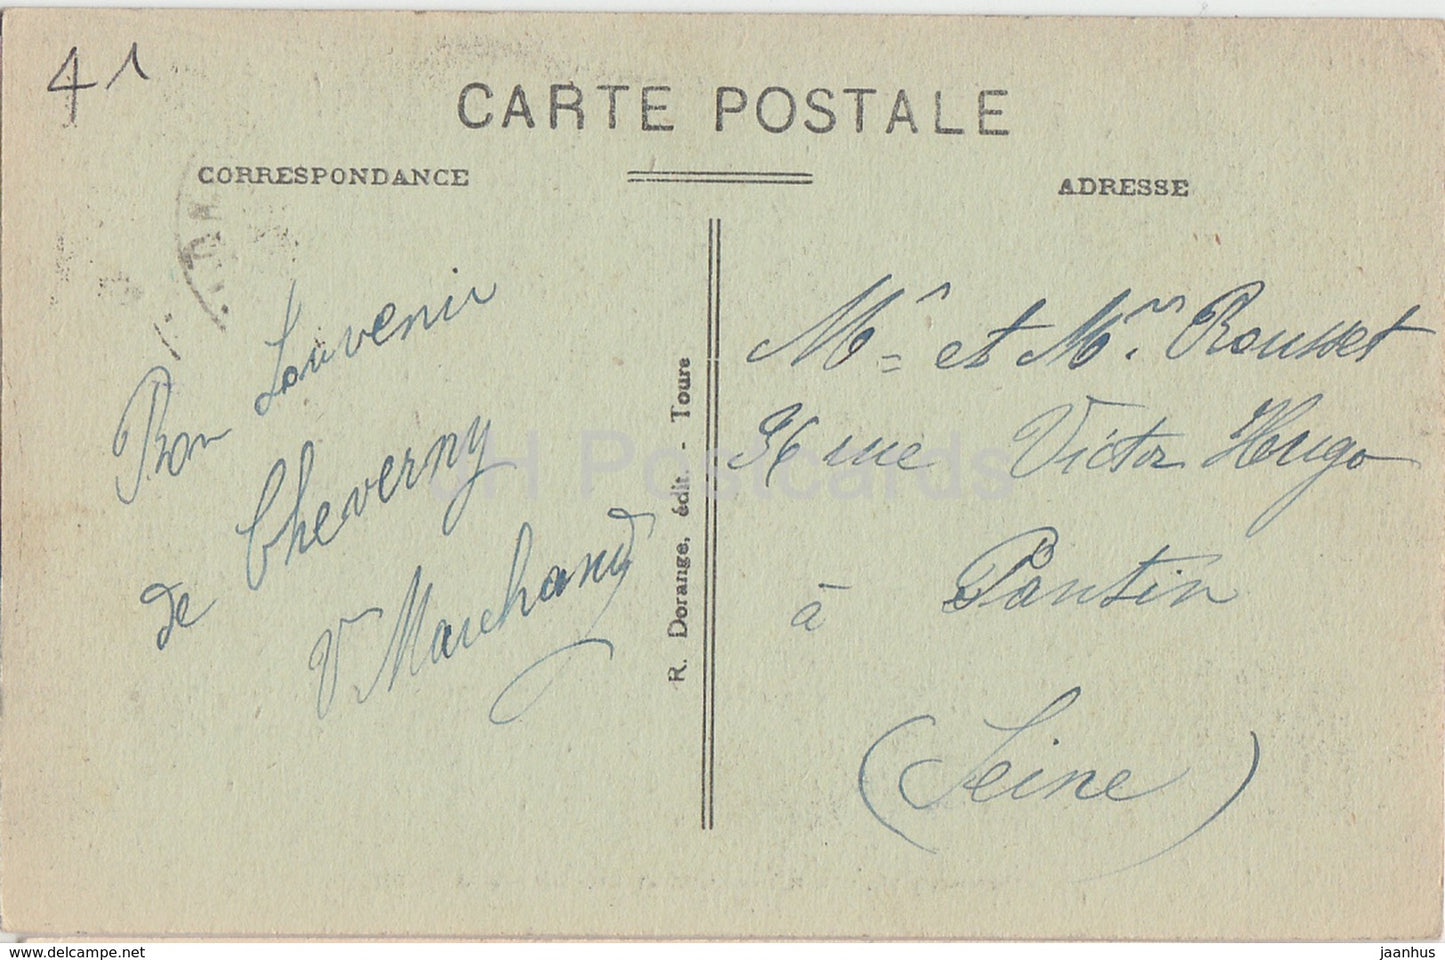 41
CARTE POSTALE
CORRESPONDANCE
ADRESSE
Bon Souvenir
de Cheverny
V Marchand
R. Dorange, édit. - Tours
Mr et Mme Rousset
36 rue Victor Hugo
à Pantin
(Seine)
JH Postcards
www.delcampe.net
jaanhus